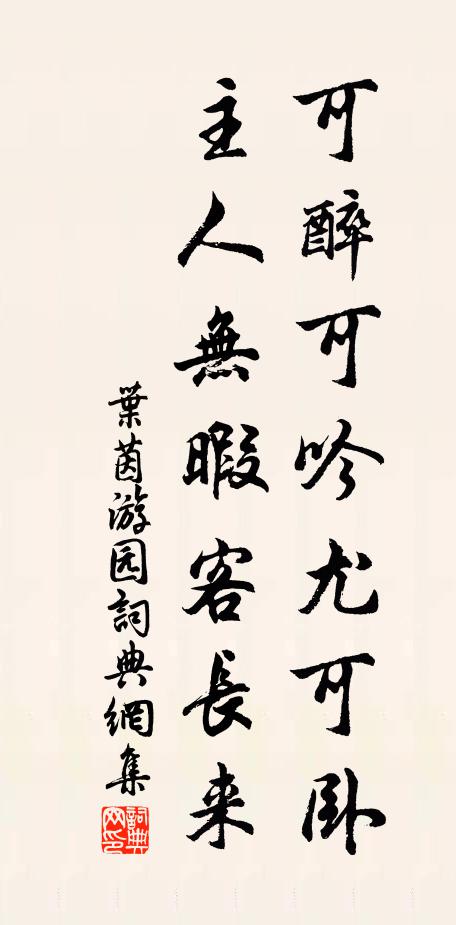 可醉可吟尤可卧
主人無暇客長来
葉茵游园詞典網集
詞典网印